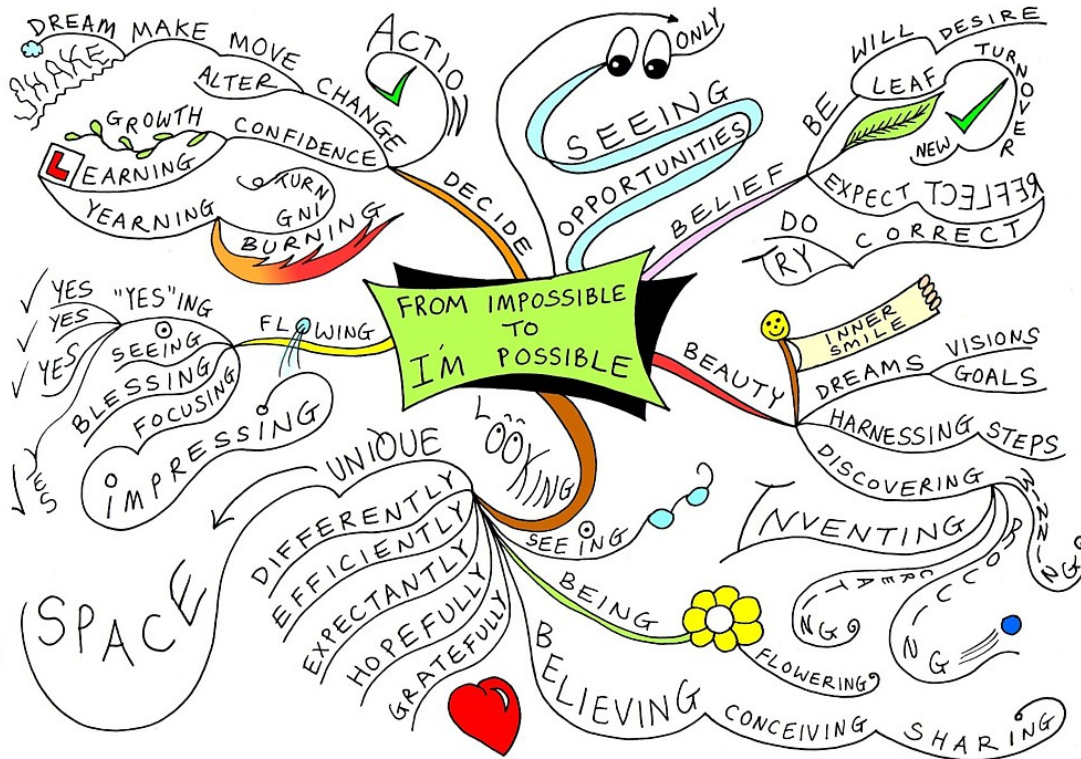 FROM IMPOSSIBLE
TO
I'M POSSIBLE
DECIDE
ACTION
CHANGE
ALTER
MOVE
MAKE
DREAM
SHAKE
CONFIDENCE
GROWTH
LEARNING
YEARNING
TURN
GNI
BURNING
OPPORTUNITIES
SEEING
ONLY
BELIEF
BE
WILL
DESIRE
LEAF
TURNOVER
NEW
EXPECT
REFLECT
CORRECT
DO
TRY
BEAUTY
INNER
SMILE
DREAMS
VISIONS
GOALS
HARNESSING
STEPS
DISCOVERING
WINNING
INVENTING
CREATING
LOOKING
SEEING
BEING
FLOWERING
BELIEVING
CONCEIVING
SHARING
GRATEFULLY
HOPEFULLY
EXPECTANTLY
EFFICIENTLY
DIFFERENTLY
UNIQUE
SPACE
FLOWING
"YES"ING
YES
YES
YES
YES
SEEING
BLESSING
FOCUSING
IMPRESSING